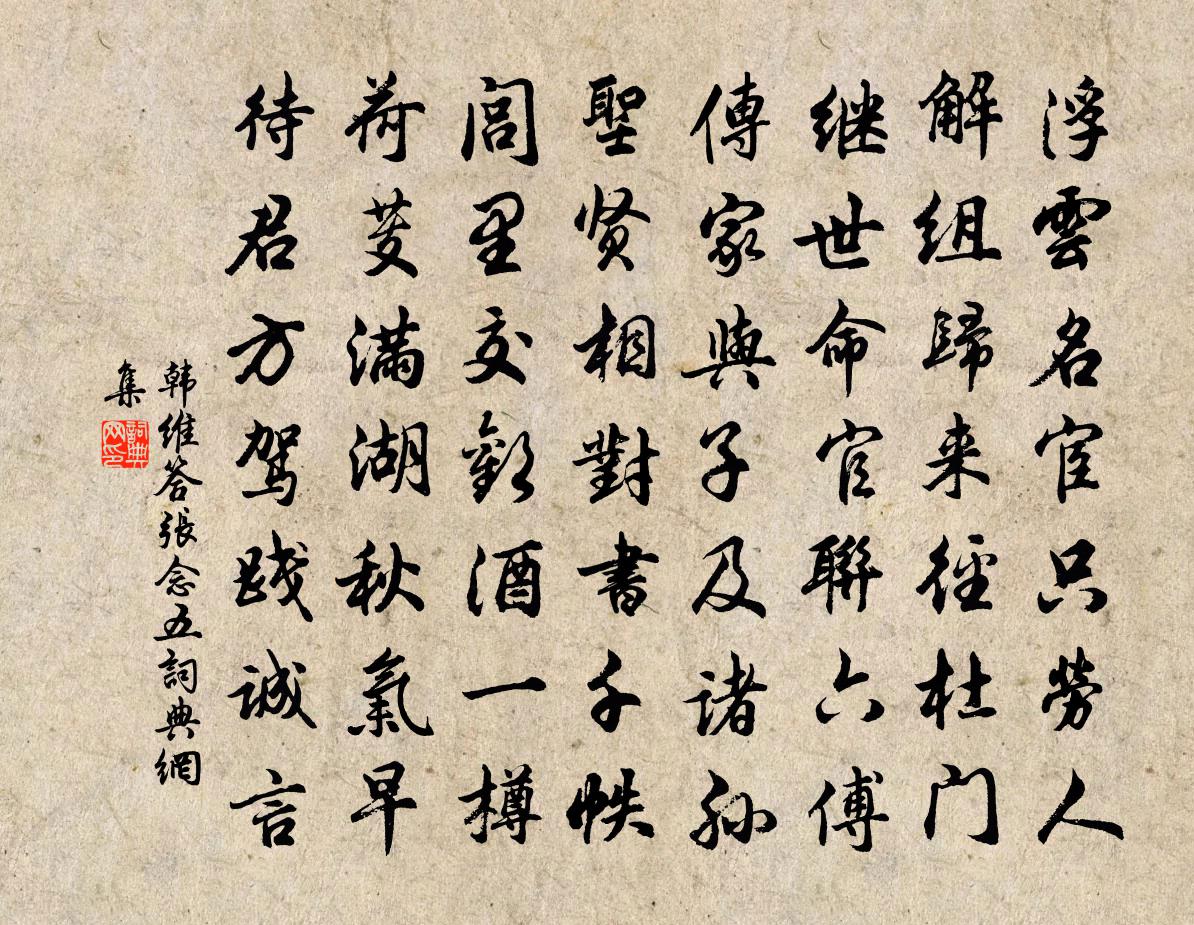 浮雲名宦只勞人
解組歸来徑杜门
继世命官聯六傅
傳家與子及诸孙
聖贤相對書千帙
閭里交歡酒一樽
荷芰满湖秋氣早
待君方驾踐诚言
韩维答張念五詞典網
集
詞典
网印